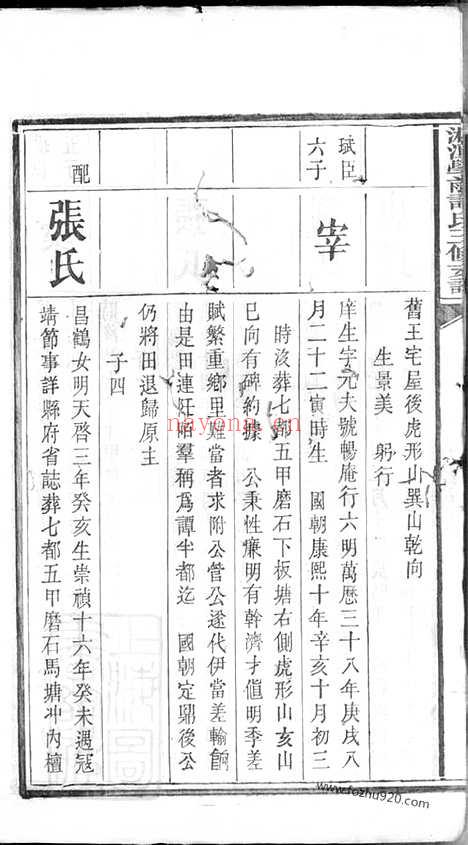 舊王宅屋後虎形山巽山乾向
生景美　躬行
珷臣
六子
宰
庠生字元夫號暢庵行六明萬歷三十八年庚戌八
月二十二寅時生　國朝康熙十年辛亥十月初三
時沒葬七都五甲磨石下板塘右側虎形山亥山
巳向有碑約據　公秉性廉明有幹濟才值明季差
賦繁重鄉里難當者求附公管公遂代伊當差輸餉
由是田連阡陌羣稱爲譚半都迄　國朝定鼎後公
仍將田退歸原主
子四
配
張氏
昌鶴女明天啓三年癸亥生崇禎十六年癸未遇冦
靖節事詳縣府省誌葬七都五甲磨石馬塘冲內檀
nayona.cn
www.fozhu920.com